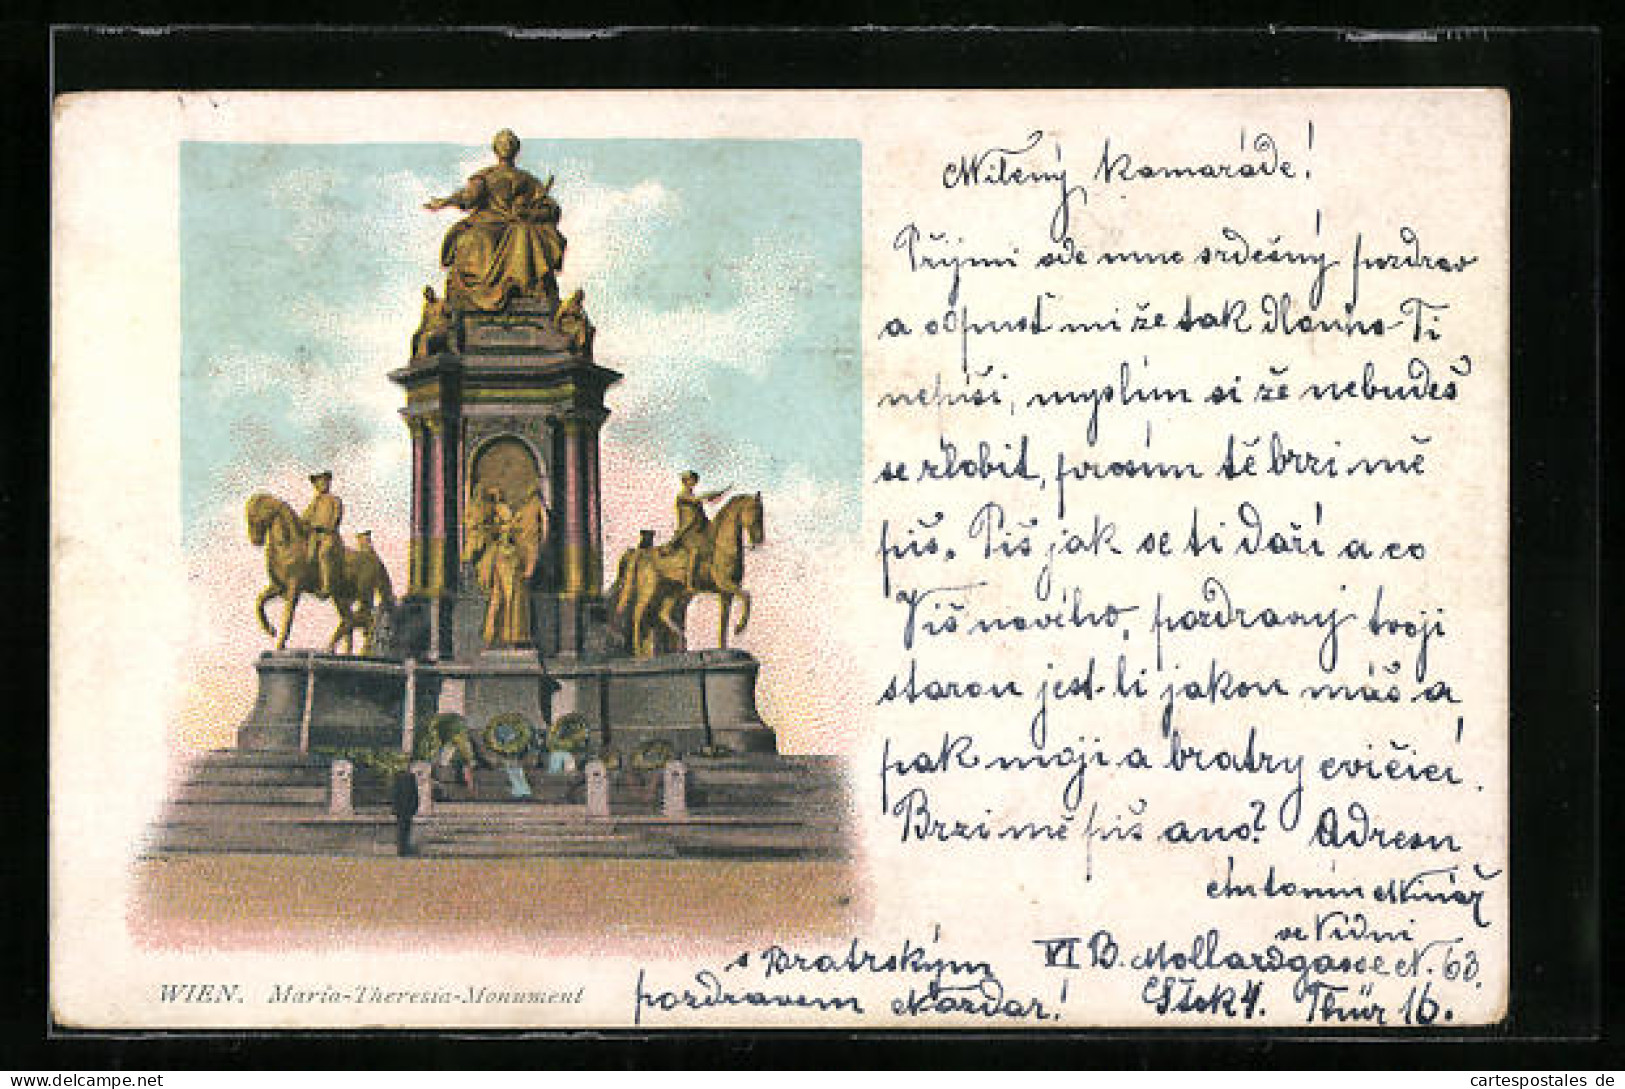 Milený Kamaráde!
Příjmi ode mne srdečný pozdrav
a odpusť mi že tak dlouho Ti
nepíši, myslím si že nebudeš
se zlobit, prosím tě brzi mě
piš. Piš jak se ti daří a co
Víš nového, pozdravuj tvoji
starou jest-li jakou máš a
pak moji a bratry cvičící.
Brzi mě piš ano? Adresu
Antonín
ve Vídni
VI B. Mollardgasse N. 63.
Stok 4. Thür 16.
s Bratrským
pozdravem Nazdar!
WIEN. Maria-Theresia-Monument
cartespostales de